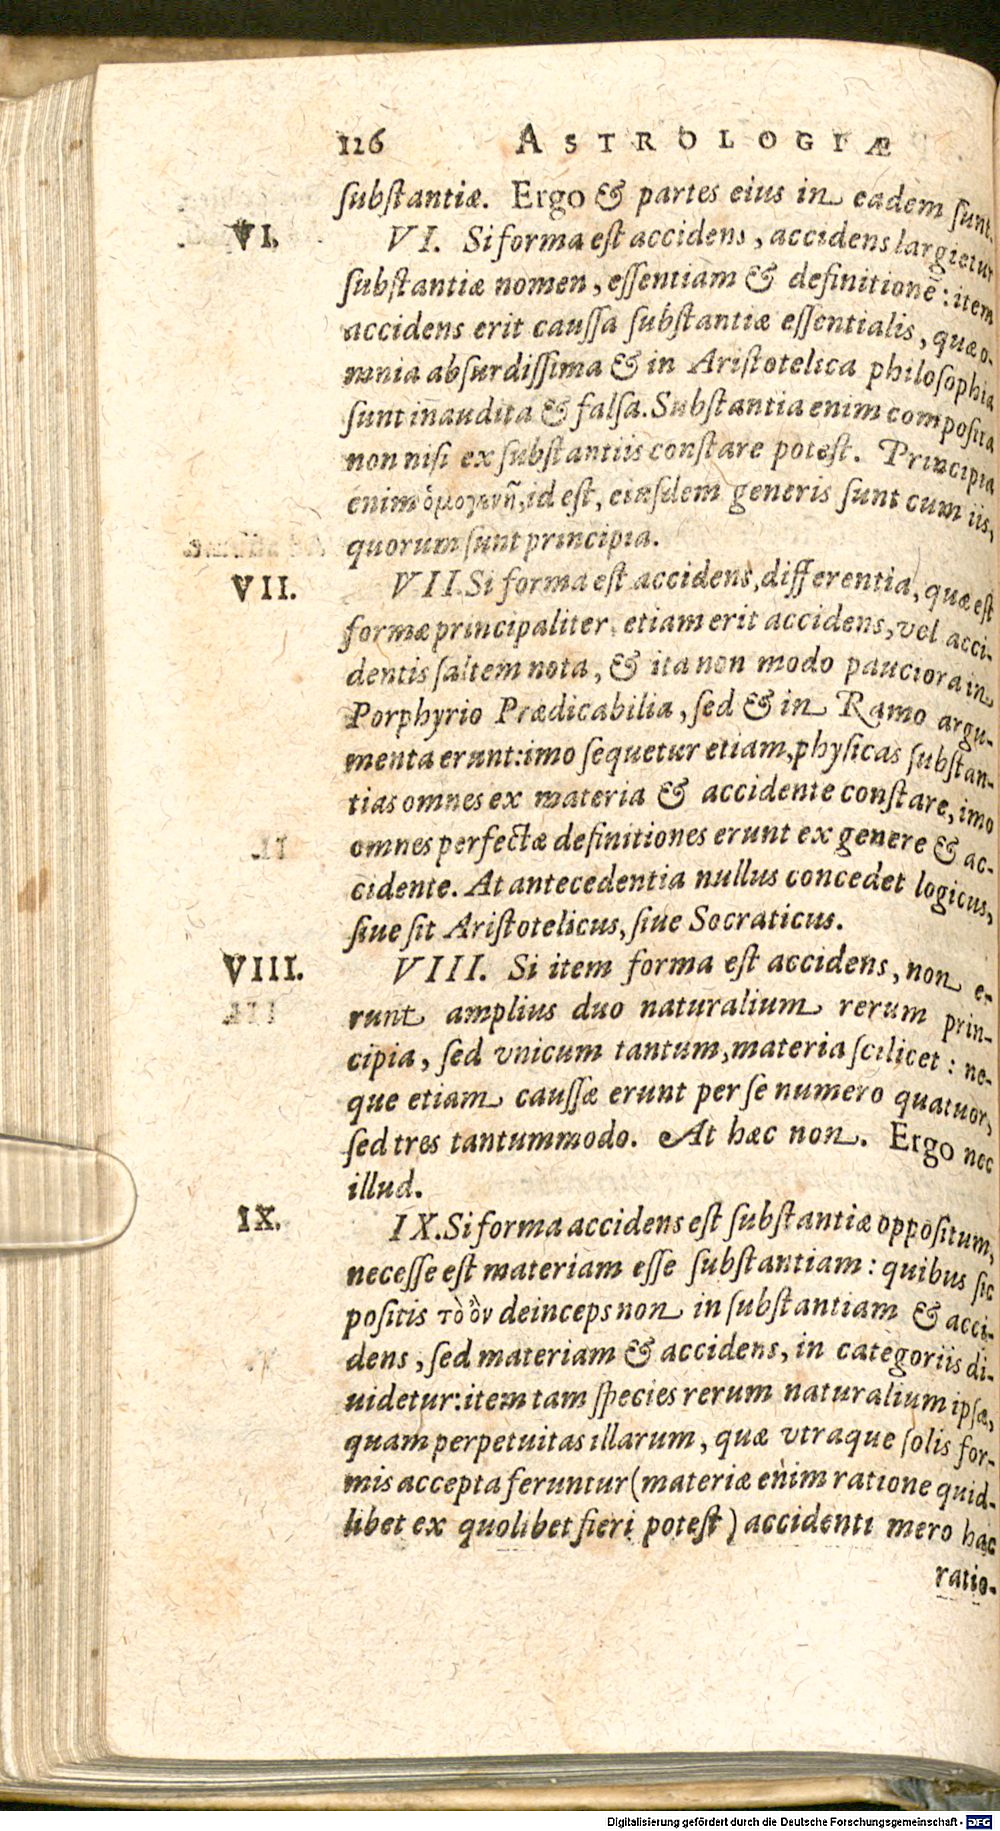 126 ASTROLOGIÆ
ſubſtantiæ. Ergo & partes eius in eadem ſunt.
VI.
VI. Si forma eſt accidens, accidens largietur
ſubſtantiæ nomen, eſſentiam & definitionē: item
accidens erit cauſſa ſubſtantiæ eſſentialis, quæ o-
mnia abſurdiſſima & in Ariſtotelica philoſophia
ſunt inaudita & falſa. Subſtantia enim compoſita
non niſi ex ſubſtantiis conſtare poteſt. Principia
enim ὁμογενῆ, id eſt, eiuſdem generis ſunt cum iis,
quorum ſunt principia.
VII.
VII. Si forma eſt accidens, differentia, quæ eſt
formæ principaliter, etiam erit accidens, vel acci-
dentis ſaltem nota, & ita non modo pauciora in
Porphyrio Prædicabilia, ſed & in Ramo argu-
menta erunt: imo ſequetur etiam, phyſicas ſubſtan-
tias omnes ex materia & accidente conſtare, imo
omnes perfectæ definitiones erunt ex genere & ac-
cidente. At antecedentia nullus concedet logicus,
ſiue ſit Ariſtotelicus, ſiue Socraticus.
VIII.
VIII. Si item forma eſt accidens, non e-
runt amplius duo naturalium rerum prin-
cipia, ſed vnicum tantum, materia ſcilicet: ne-
que etiam cauſſæ erunt per ſe numero quatuor,
ſed tres tantummodo. At hæc non. Ergo nec
illud.
IX.
IX. Si forma accidens eſt ſubſtantiæ oppoſitum,
neceſſe eſt materiam eſſe ſubſtantiam: quibus ſic
poſitis τὸ ὂν deinceps non in ſubſtantiam & acci-
dens, ſed materiam & accidens, in categoriis di-
uidetur: item tam ſpecies rerum naturalium ipſæ,
quam perpetuitas illarum, quæ vtraque ſolis for-
mis accepta feruntur (materiæ enim ratione quid-
libet ex quolibet fieri poteſt) accidenti mero hac
ratio-
Digitalisierung gefördert durch die Deutsche Forschungsgemeinschaft - DFG